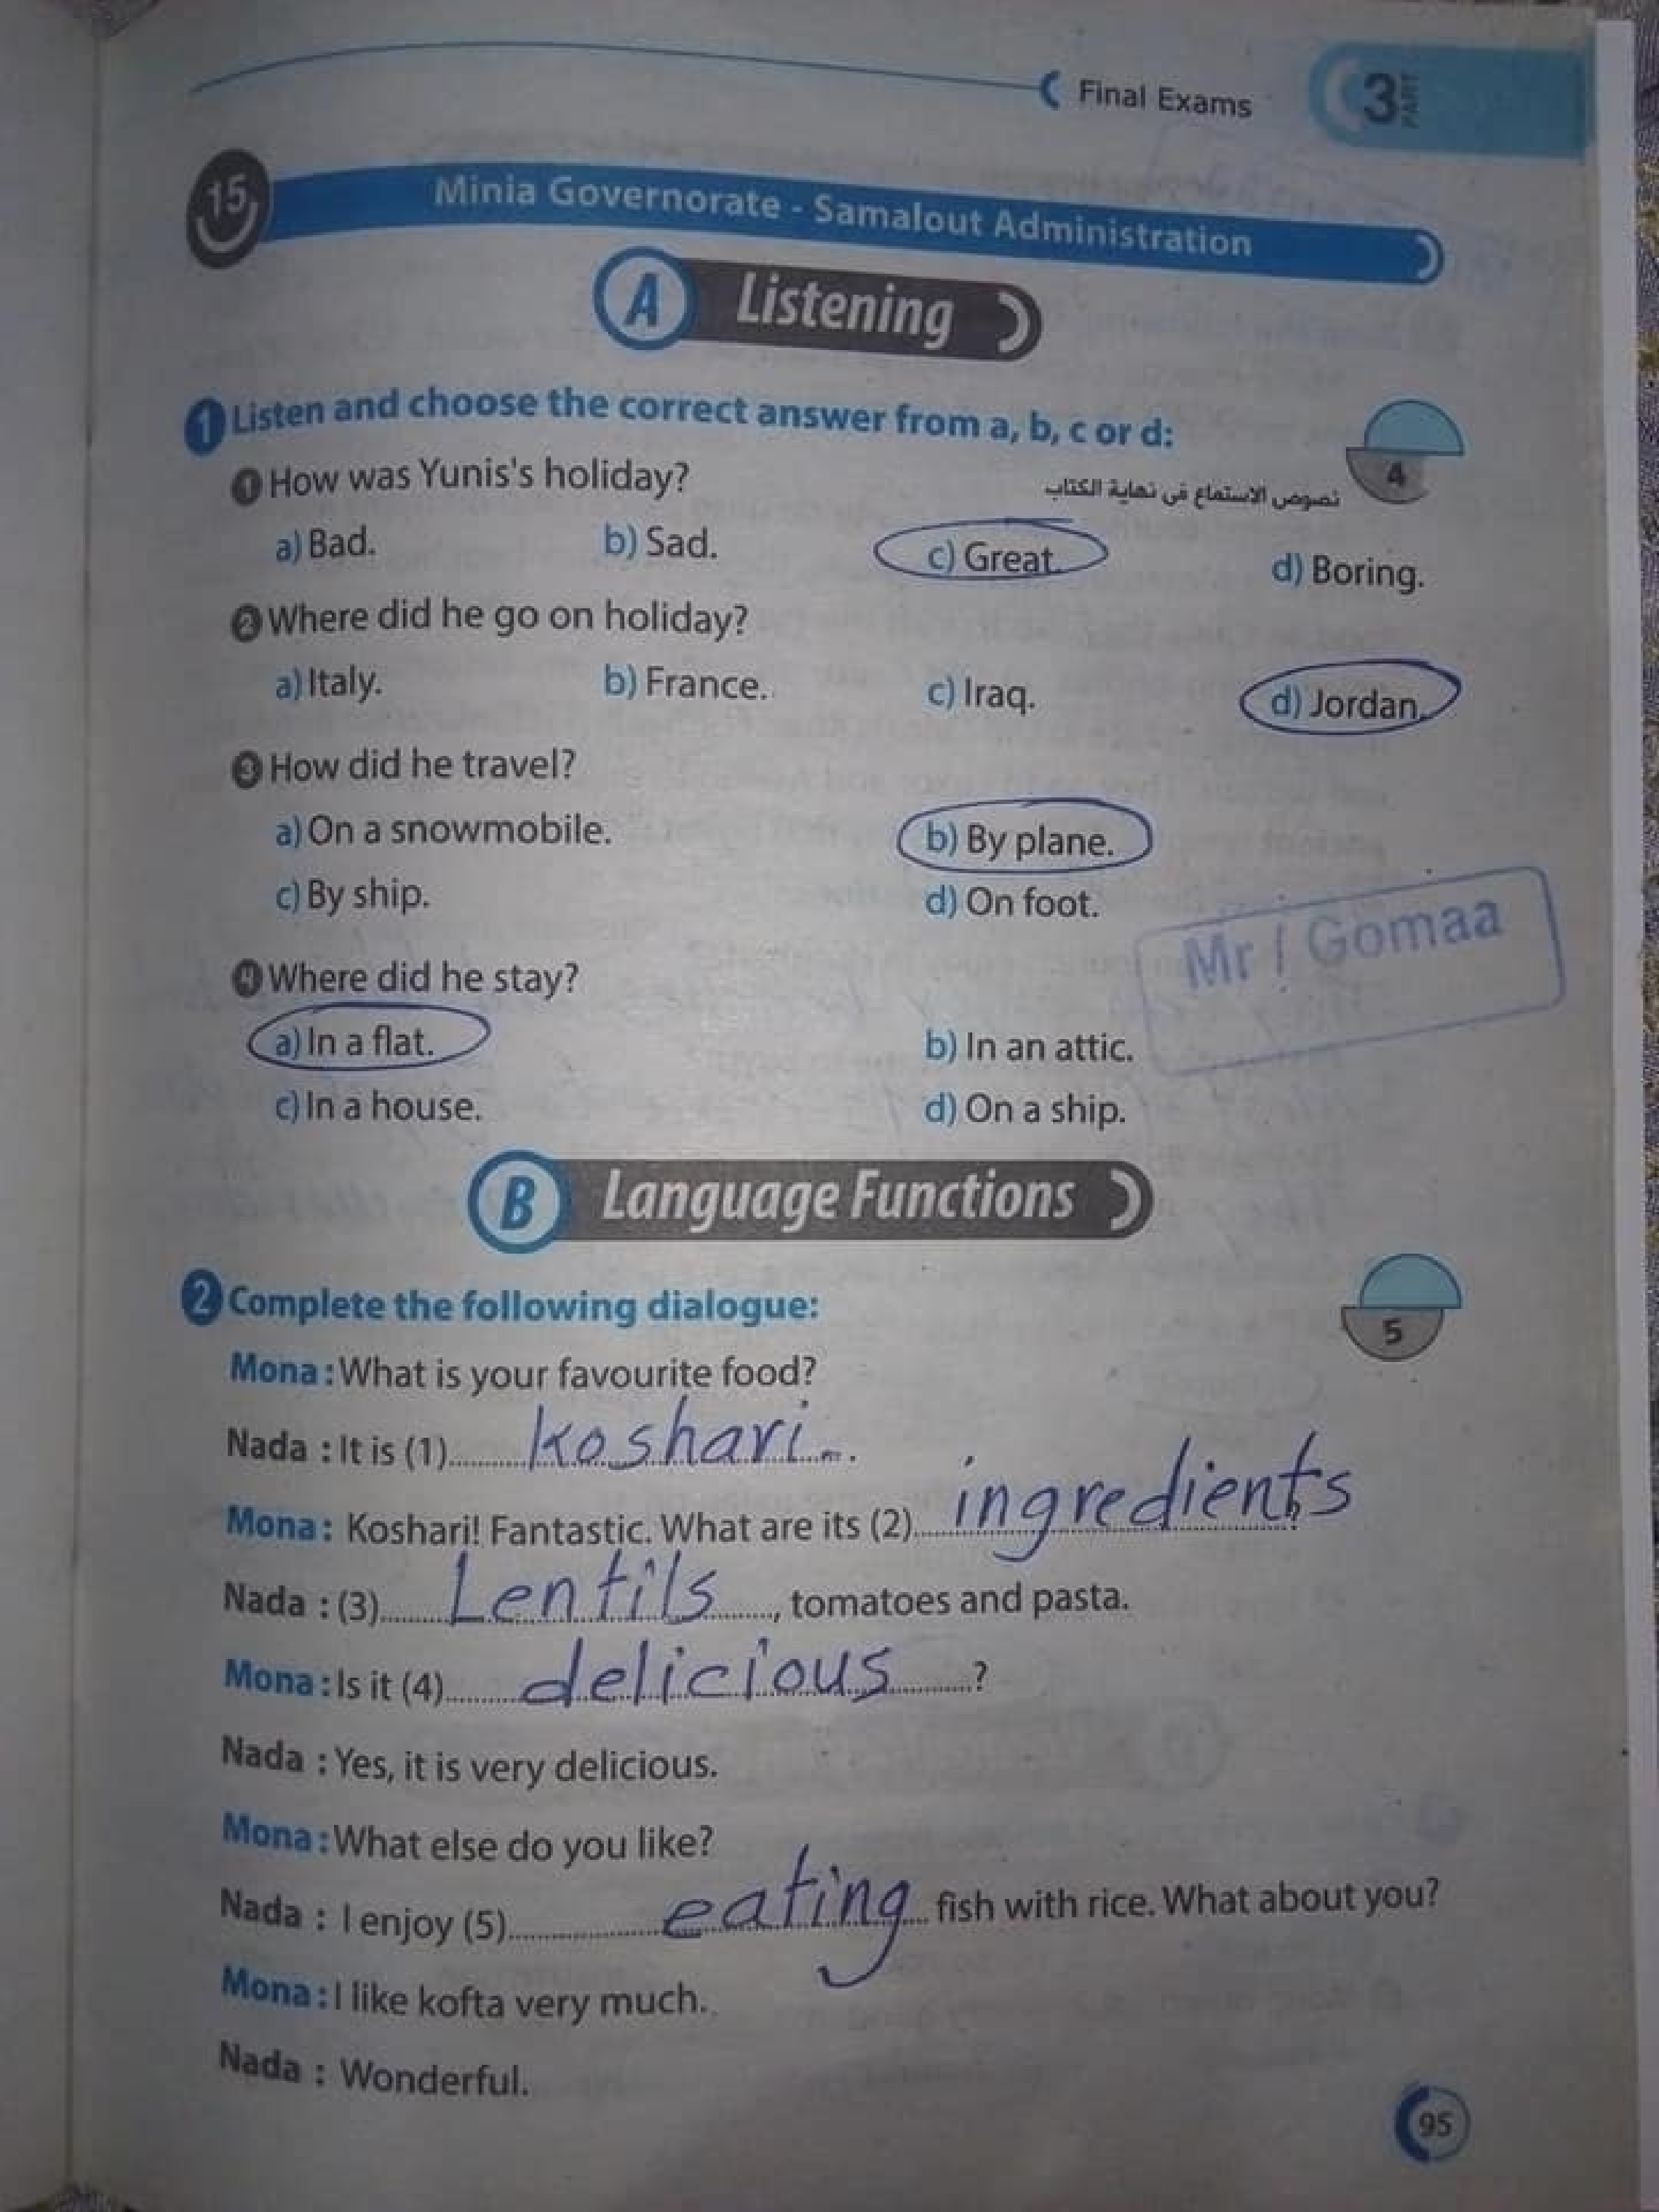 Final Exams
3 PART
15 Minia Governorate - Samalout Administration
A Listening
1 Listen and choose the correct answer from a, b, c or d:
4
1 How was Yunis's holiday?
نصوص الاستماع فى نهاية الكتاب
a) Bad. b) Sad. c) Great. d) Boring.
2 Where did he go on holiday?
a) Italy. b) France. c) Iraq. d) Jordan.
3 How did he travel?
a) On a snowmobile. b) By plane.
c) By ship. d) On foot.
Mr / Gomaa
4 Where did he stay?
a) In a flat. b) In an attic.
c) In a house. d) On a ship.
B Language Functions
2 Complete the following dialogue:
5
Mona : What is your favourite food?
Nada : It is (1) koshari.
Mona : Koshari! Fantastic. What are its (2) ingredients?
Nada : (3) Lentils, tomatoes and pasta.
Mona : Is it (4) delicious?
Nada : Yes, it is very delicious.
Mona : What else do you like?
Nada : I enjoy (5) eating fish with rice. What about you?
Mona : I like kofta very much.
Nada : Wonderful.
95